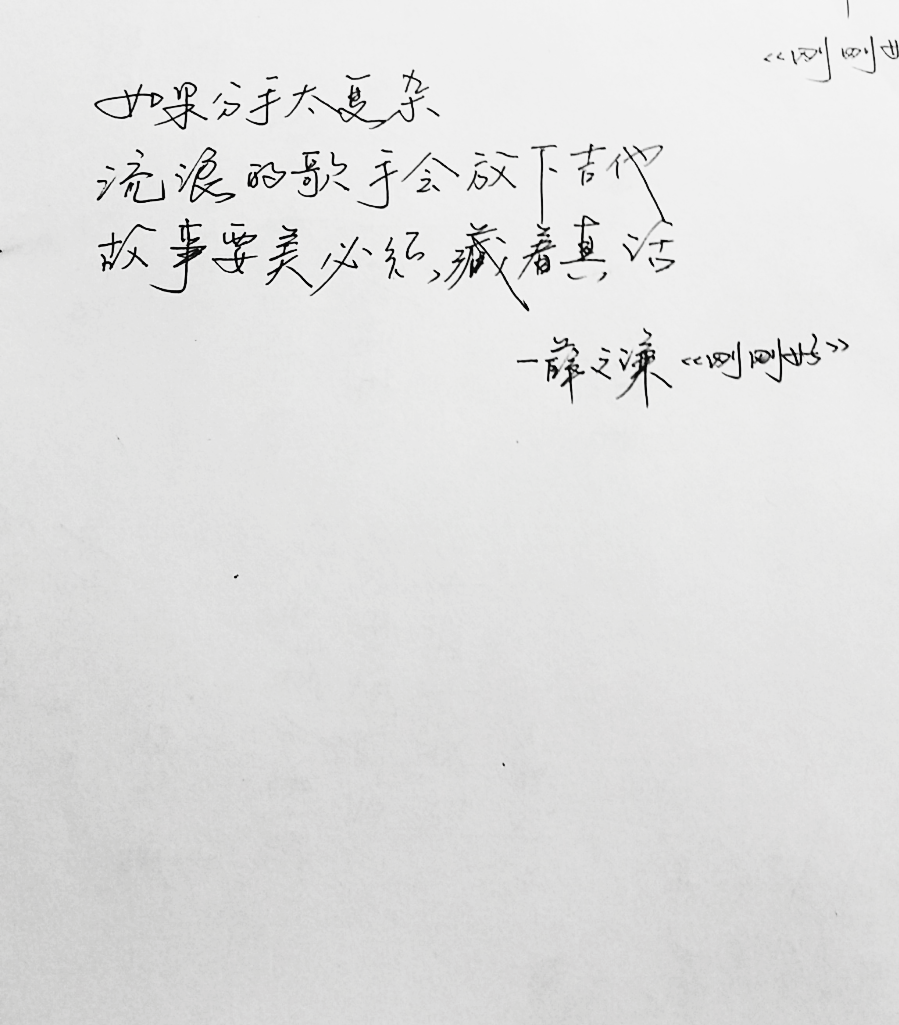 《刚刚好
如果分手太复杂
流浪的歌手会放下吉他
故事要美必须藏着真话
—薛之谦《刚刚好》